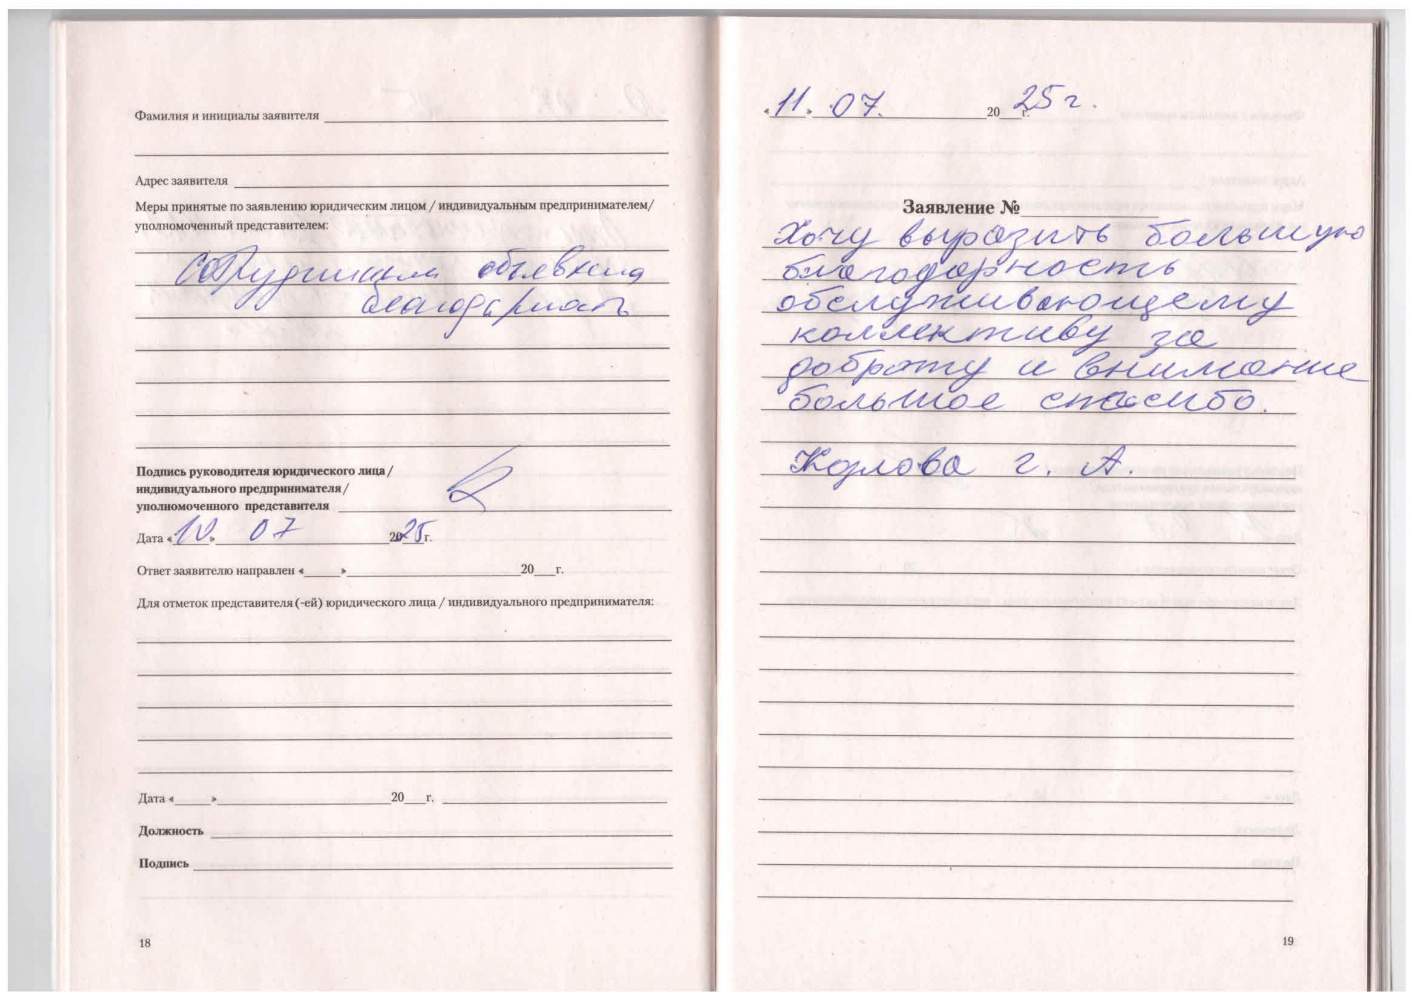 Фамилия и инициалы заявителя
Адрес заявителя
Меры принятые по заявлению юридическим лицом / индивидуальным предпринимателем/
уполномоченный представителем:
Сотрудникам объявлена
благодарность
Подпись руководителя юридического лица /
индивидуального предпринимателя /
уполномоченного представителя
Дата «10» 07 2025г.
Ответ заявителю направлен «____»____20__г.
Для отметок представителя (-ей) юридического лица / индивидуального предпринимателя:
Дата «____»____20__г.
Должность
Подпись
18
«11» 07. 20 25 г.
Заявление №
Хочу выразить большую
благодарность
обслуживающему
коллективу за
доброту и внимание
большое спасибо.
Козлова г. А.
19